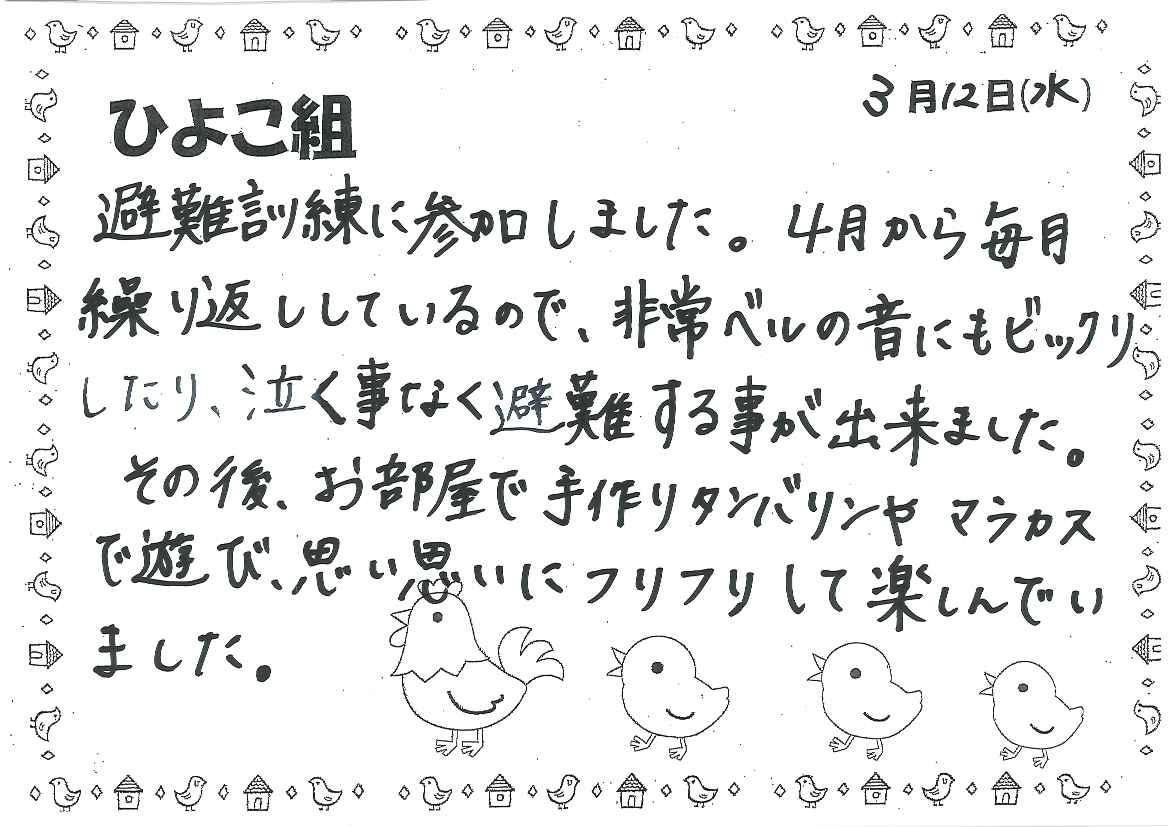 3月12日(水)
ひよこ組
避難訓練に参加しました。4月から毎月
繰り返ししているので、非常ベルの音にもビックリ
したり、泣く事なく避難する事が出来ました。
その後、お部屋で手作りタンバリンやマラカス
で遊び、思い思いにフリフリして楽しんでい
ました。